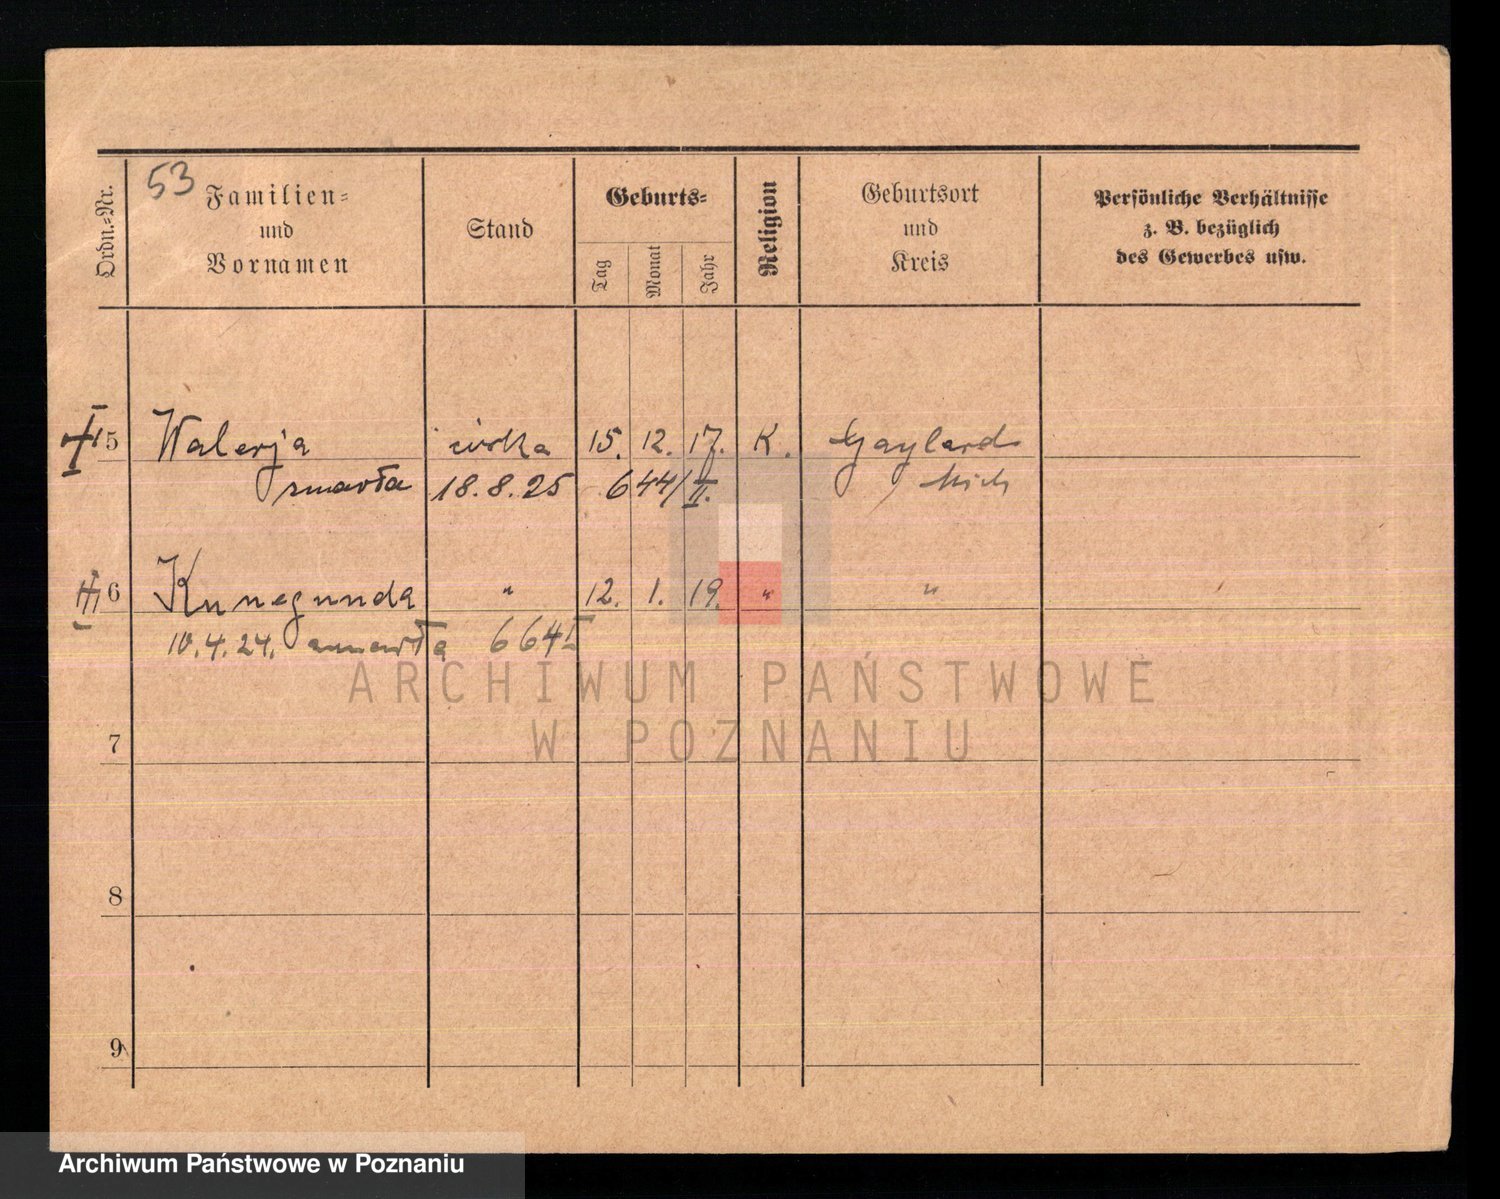 53
Ordn.=Nr.
Familien=
und
Vornamen
Stand
Geburts=
Tag
Monat
Jahr
Religion
Geburtsort
und
Kreis
Persönliche Verhältnisse
z. B. bezüglich
des Gewerbes usw.
5 Walerja córka 15. 12. 17. K. Gaylard
zmarła 18.8.25 644/II. Mich
6 Kunegunda " 12. 1. 19. " "
10.4.24. zmarła 664
ARCHIWUM PAŃSTWOWE
W POZNANIU
7
8
9
Archiwum Państwowe w Poznaniu